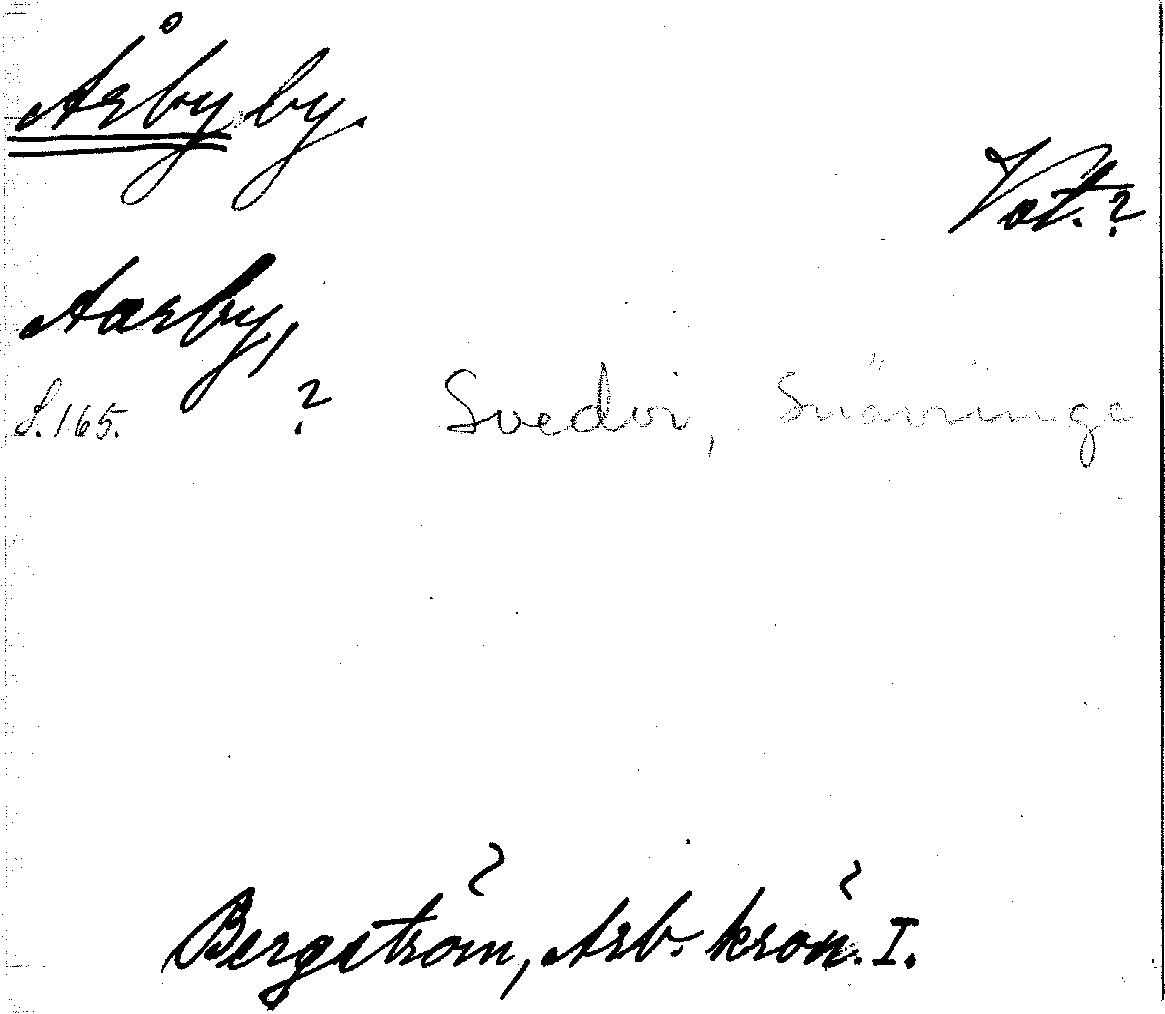 Årby by.
Vat.?
Aarby,
S.165. ? Svedvi, Snävringe
Bergström, Arb. krön. I.